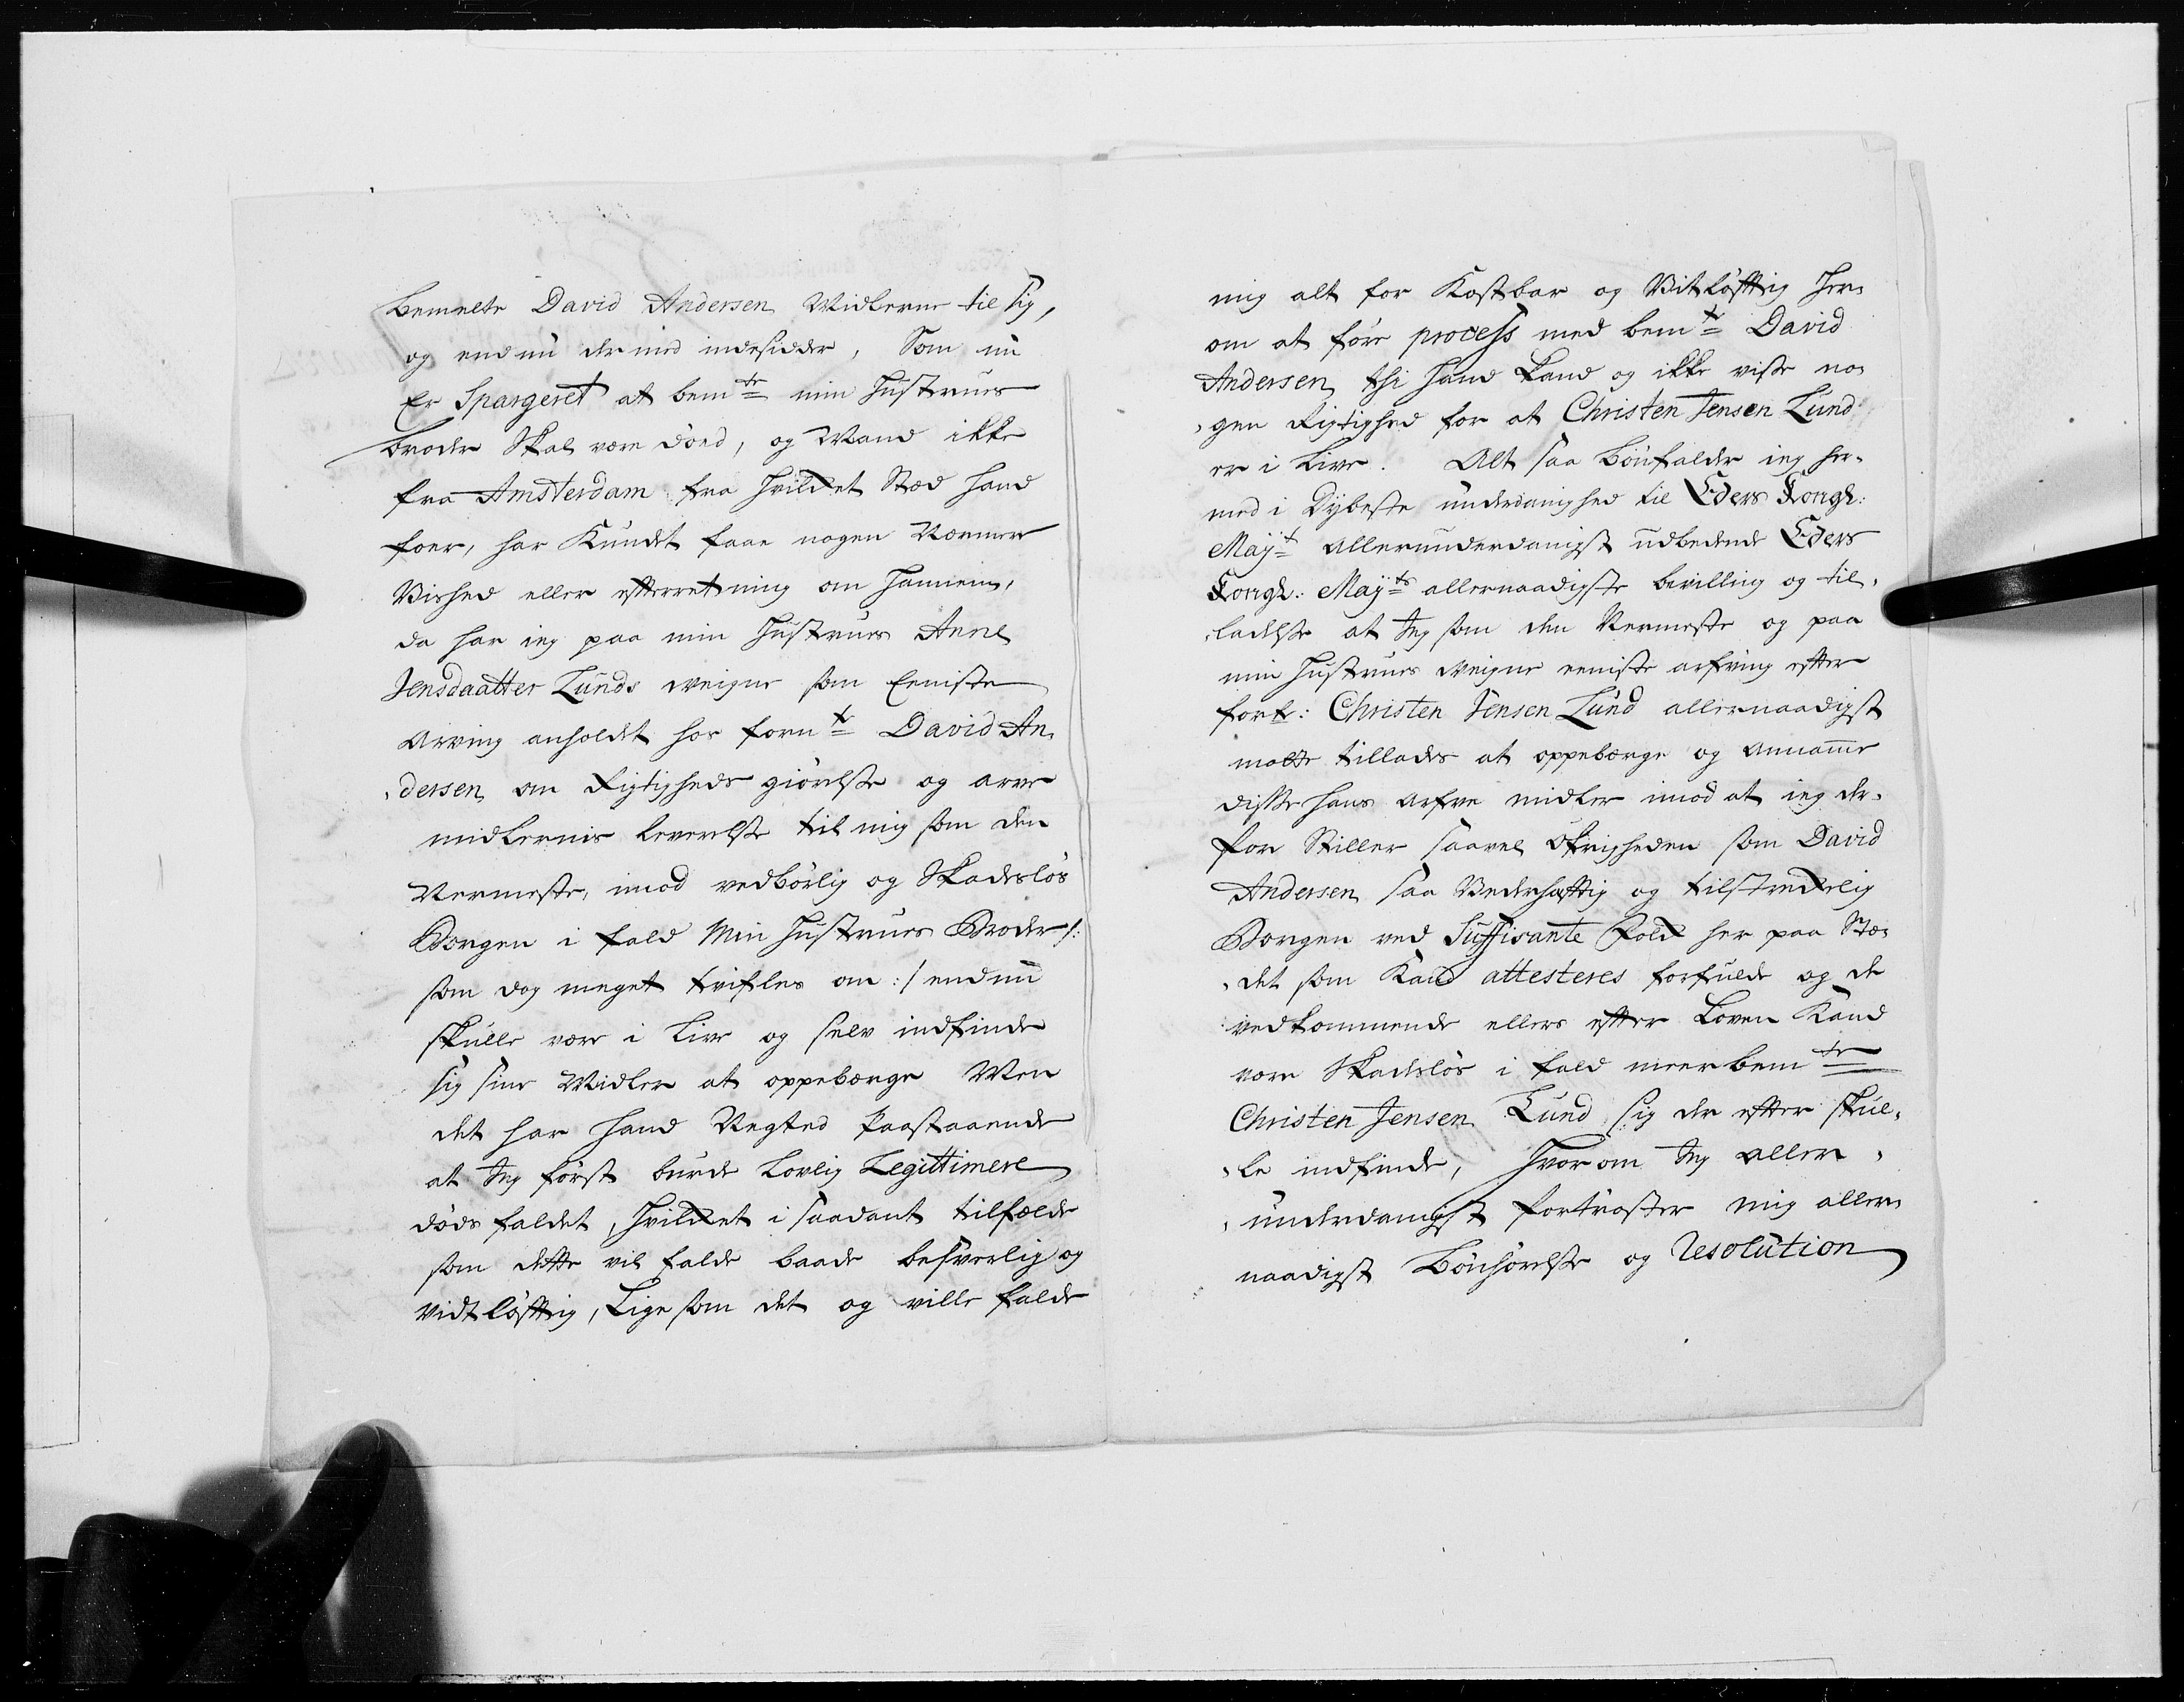 bemelte David Andersen Midlerne til sig,
og endnu der med indesidder, Som nu
Er Spargeret at bemte min Hustrues
broder Skal være döed, og Mand ikke
fra Amsterdam fra hvilket Stæd hand
foer, har Kundet faae nogen Nærmere
Vished eller efterretning om hannem,
da har ieg paa min Hustrues Anne
Jensdaatter Lunds weigne som Eeniste
Arving anholdet hos fornte David An,
,dersen om Rigtigheds giörelsse og arve
midlernis leverelsse til mig som den
Nermeste, imod vedbörlig og Skadeslös
Borgen i fald Min Hustrues Broder /:
som dog meget tvifles om :/ endnu
skulle være i Live og selv indfinde
sig sine Midler at oppebærge Men
det har hand Negted Paastaaende
at Jeg först burde lovlig Legittimere
döds faldet, hvilket i saadant tilfælde
som dette vil falde baade besverlig og
vidtlöfftig, Lige som det og ville falde
mig alt for Kostbar og Vitlöfftig her,
om at före process med bemte David
Andersen, thi hand kand og ikke viste no,
,gen Rigtighed for at Christen Jensen Lund
er i Live. Alt saa bönfalder ieg her,
med i Dybeste underdanighed til Eders Kongl:
Mayt allerunderdanigst udbedende Eders
Kongl: Mayts allernaadigste bevilling og til,
,ladelsse at Jeg som den Nermeste og paa
min Hustrues weigne eeniste arfving efter
forte: Christen Jensen Lund allernaadigst
motte tillades at oppebærge og annamme
disse hans arfve midler imod at ieg der,
for Stiller saavel öfrigheden som David
Andersen saa Vederhæfftig og tilstreckelig
Borgen ved Suffisante Folck her paa Stæ,
,det som Kand attesteres forfulde og de
vedkommende ellers effter Loven Kand
være Skadeslös i fald meerbemte
Christen Jensen Lund sig der efter skul,
,le indfinde, hvorom Jeg aller,
,underdanigst fortröster mig aller,
naadigst Bönhörelsse og Resolution